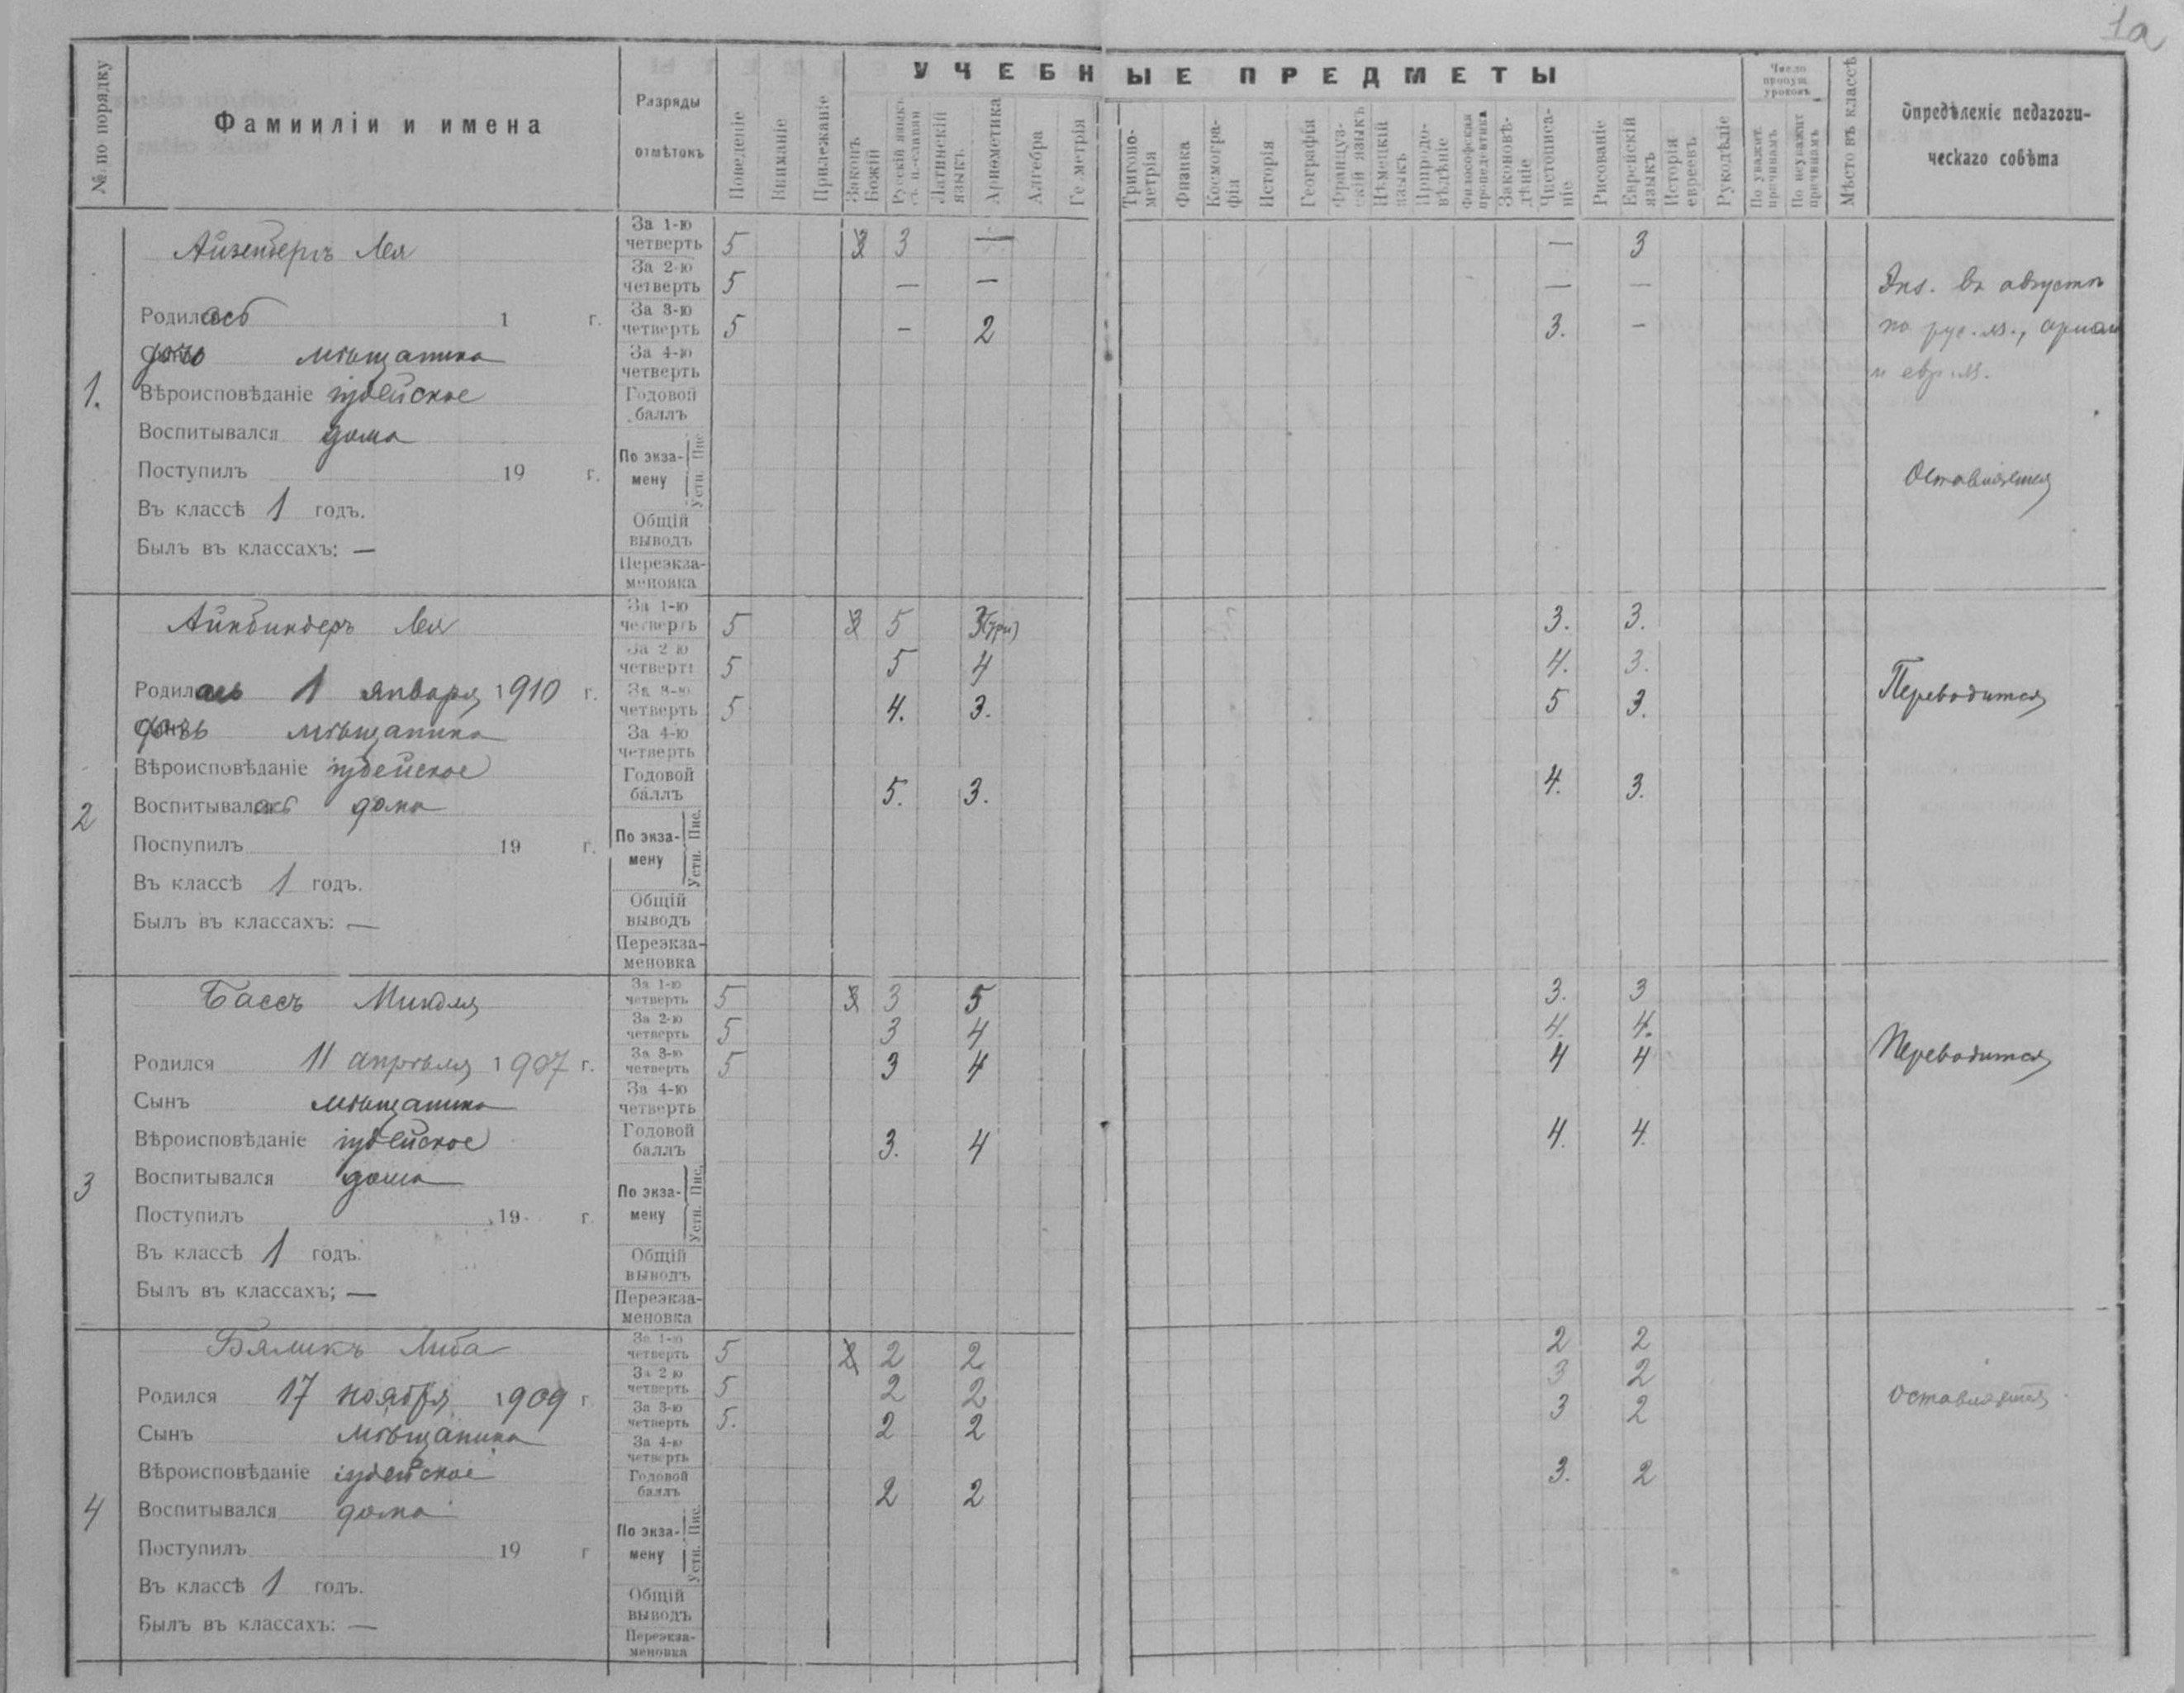 1а
№ по порядку
Фамииліи и имена
Разряды
отмѣтокъ
Поведеніе
Вниманіе
Прилежаніе
УЧЕБНЫЕ ПРЕДМЕТЫ
Законъ Божій
Русскій языкъ съ ц.-славян
Латинскій языкъ
Ариѳметика
Алгебра
Геометрія
Тригоно-метрія
Физика
Космогра-фія
Исторія
Географія
Француз-скій языкъ
Нѣмецкій языкъ
Природо-вѣдѣніе
Философская пропедевтика
Законовѣ-дѣніе
Чистописа-ніе
Рисованіе
Еврейскій языкъ
Исторія евреевъ
Рукодѣліе
Число пропущ уроковъ
По уважит. причинамъ
По неуважит причинамъ
Мѣсто въ классѣ
Опредѣленіе педагоги-
ческаго совѣта
1.
Айзенбергъ Лея
Родилась 1 г.
дочь мѣщанина
Вѣроисповѣданіе іудейское
Воспитывался дома
Поступилъ 19 г.
Въ классѣ 1 годъ.
Былъ въ классахъ: —
За 1-ю четверть 5 3 3 — — 3
За 2-ю четверть 5 — — — —
За 3-ю четверть 5 – 2 3. –
За 4-ю четверть
Годовой баллъ
По экза-мену Пис Устн.
Общій выводъ
Переэкза-меновка
Экз. въ августѣ
по рус. яз., ариѳм
и евр. яз.
Оставляется
2
Айнбиндеръ Лея
Родилась 1 января 1910 г.
дочь мѣщанина
Вѣроисповѣданіе іудейское
Воспитывалась дома
Поспупилъ 19 г.
Въ классѣ 1 годъ.
Былъ въ классахъ: —
За 1-ю четверть 5 3 5 3(три) 3. 3.
За 2-ю четверть 5 5 4 4. 3.
За 3-ю четверть 5 4. 3. 5 3.
За 4-ю четверть
Годовой баллъ 5. 3. 4. 3.
По экза-мену Пис. Устн.
Общій выводъ
Переэкза-меновка
Переводится
3
Бассъ
Родился 11 апрѣля 1907 г.
Сынъ мѣщанина
Вѣроисповѣданіе іудейское
Воспитывался дома
Поступилъ 19 г.
Въ классѣ 1 годъ.
Былъ въ классахъ; —
За 1-ю четверть 5 3 3 5 3. 3
За 2-ю четверть 5 3 4 4. 4.
За 3-ю четверть 5 3 4 4 4
За 4-ю четверть
Годовой баллъ 3. 4 4. 4.
По экза-мену Пис. Устн.
Общій выводъ
Переэкза-меновка
Переводится
4
Бяликъ Либа
Родился 17 ноября 1909 г
Сынъ мѣщанина
Вѣроисповѣданіе іудейское
Воспитывался дома
Поступилъ 19 г
Въ классѣ 1 годъ.
Былъ въ классахъ: —
За 1-ю четверть 5 2 2 2 2 2
За 2 ю четверть 5 2 2 3 2
За 3-ю четверть 5. 2 2 3 2
За 4-ю четверть
Годовой баллъ 2 2 3. 2
По экза-мену Пис. Устн.
Общій выводъ
Переэкза-меновка
Оставляется